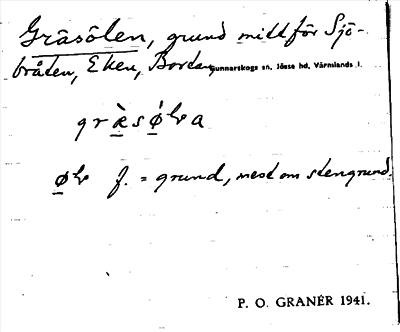 Gräsölen, grund mitt för Sjö-
bråten, Eken, Bordan, Gunnarskogs sn, Jösse hd, Värmlands l.
græ̀sǿlva
ølv f. = grund, mest om stengrund.
P. O. GRANÉR 1941.